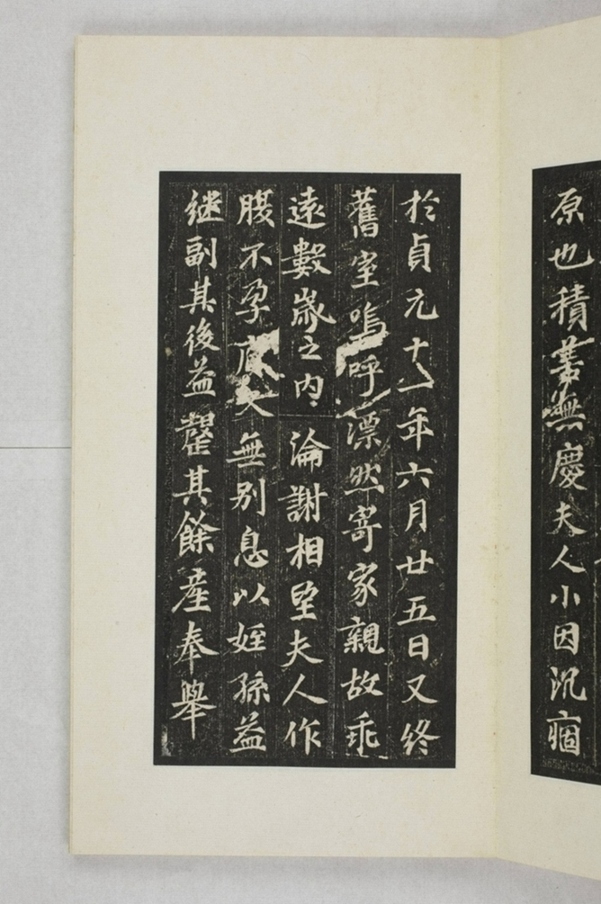 原也積善無慶夫人小因沉痼
於貞元十一年六月廿五日又終
舊室嗚呼漂然寄家親故乖
遠數歲之内淪謝相望夫人作
腹不孕夫無別息以姪孫益
継副其後益罄其餘產奉舉